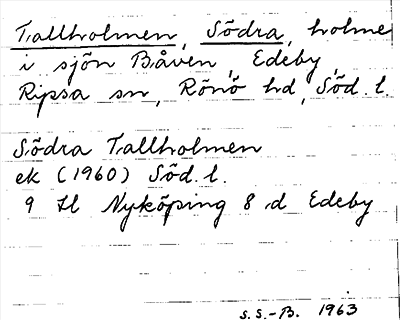 Tallholmen, Södra, holme
i sjön Båven, Edeby,
Ripsa sn, Rönö hd, Söd. l.
Södra Tallholmen
ek (1960) Söd. l.
9 H Nyköping 8 d Edeby
S.S.-B. 1963